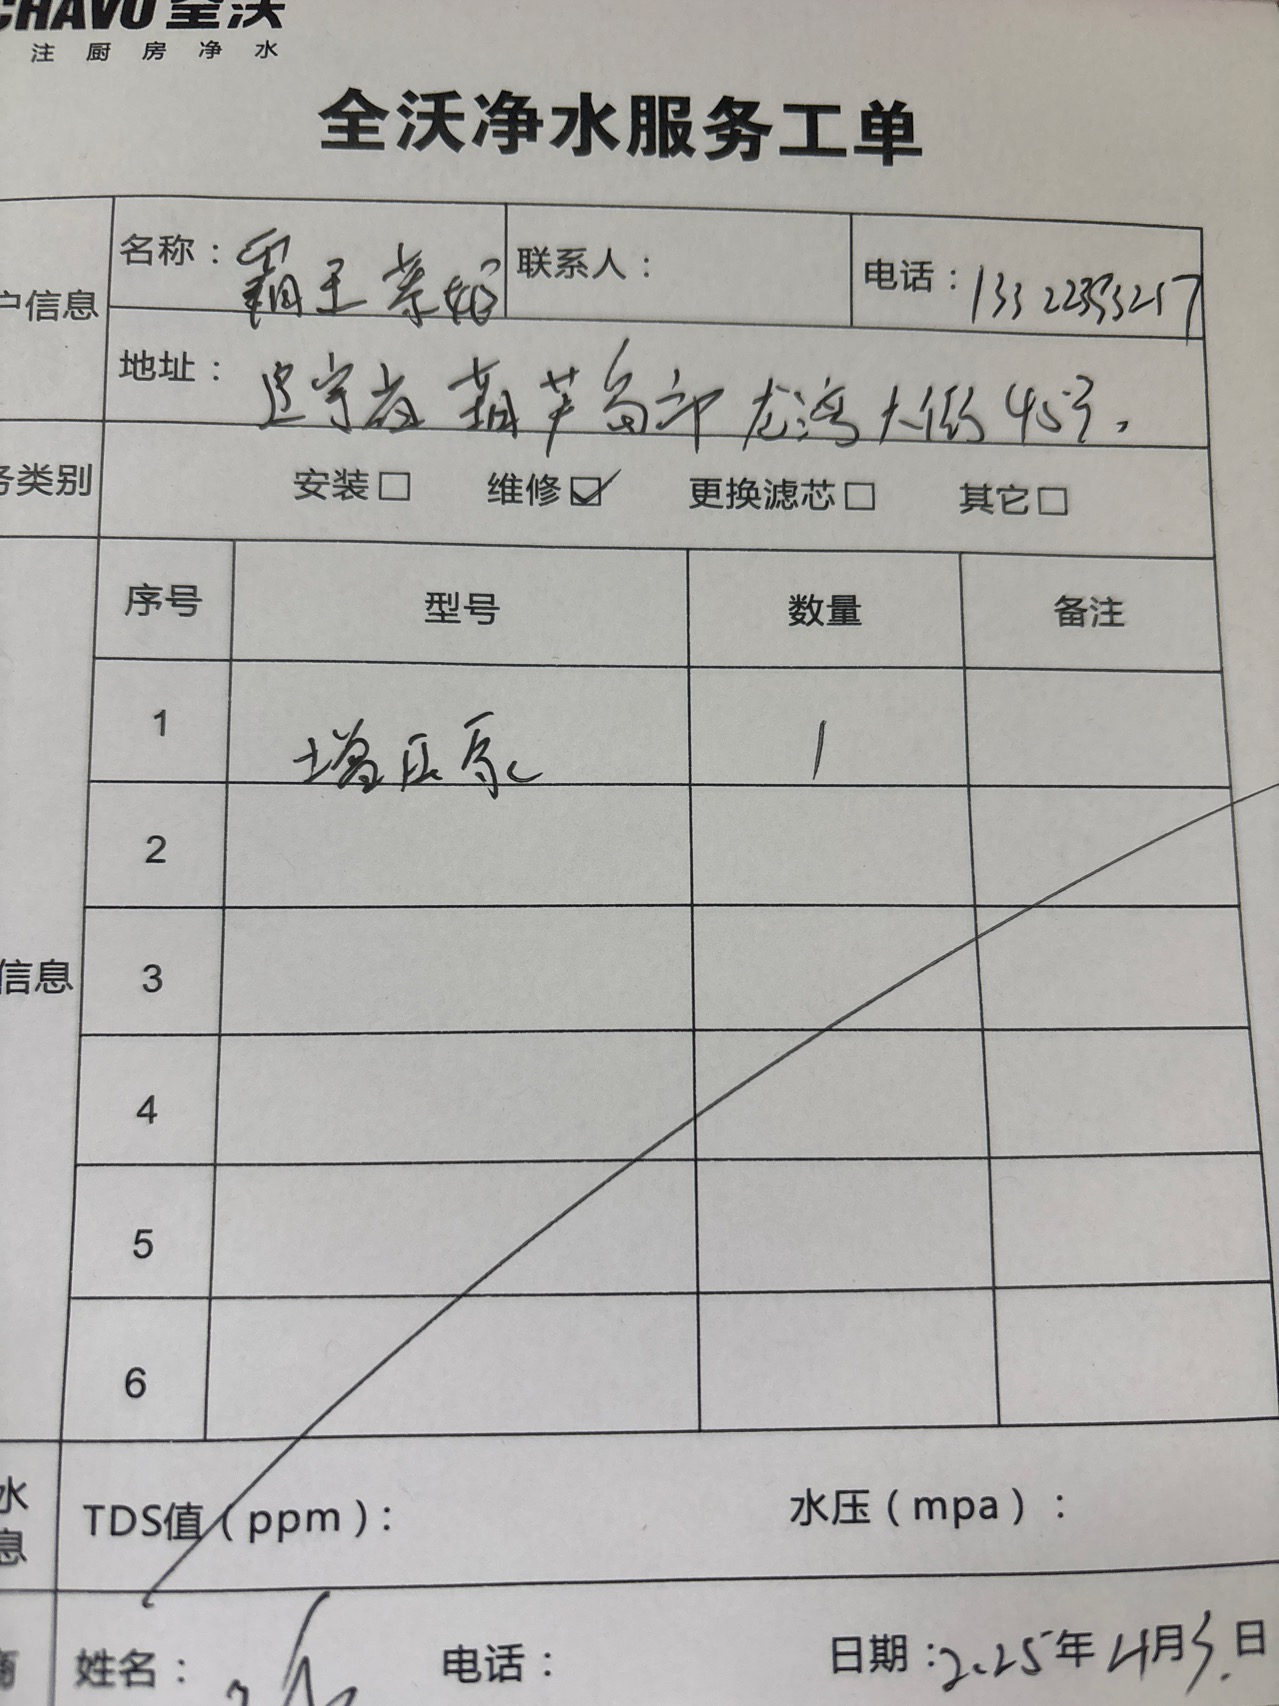 CHAVO 全沃
注厨房净水
全沃净水服务工单
户信息
名称：霸王茶姬 联系人： 电话：13322353217
地址：辽宁省葫芦岛市龙湾大街45号.
务类别 安装□ 维修☑ 更换滤芯□ 其它□
序号 型号 数量 备注
1 增压泵 1
2
信息 3
4
5
6
水息 TDS值（ppm）： 水压（mpa）：
商 姓名： 电话： 日期：2025年4月5日